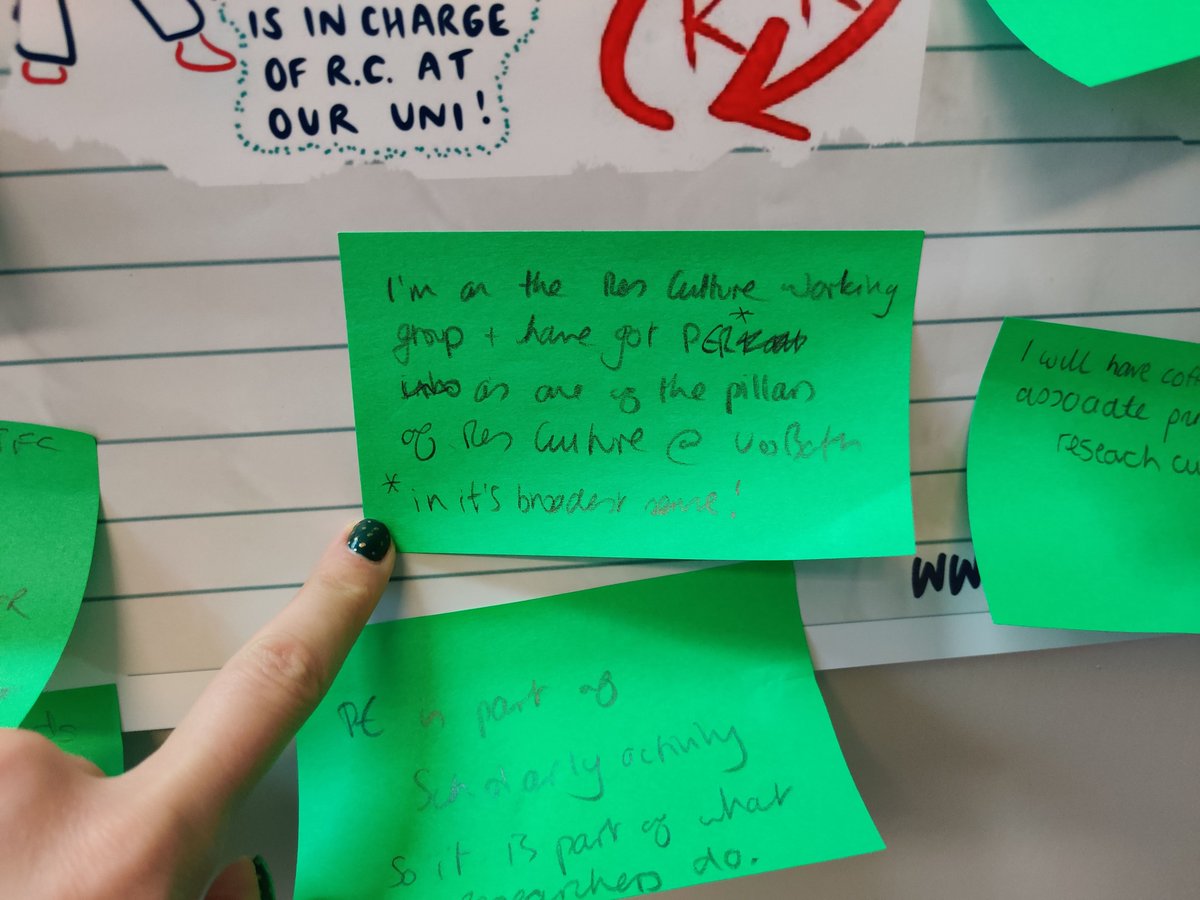 IS IN CHARGE
OF R.C. AT
OUR UNI!
I'm on the Res Culture working
group + have got PER*
as one of the pillars
of Res Culture @ UoBath
* in it's broadest sense!
I will have cof
associate pr
research cu
WW
PE is part of
Scholarly activity
So it is part of what
researchers do.